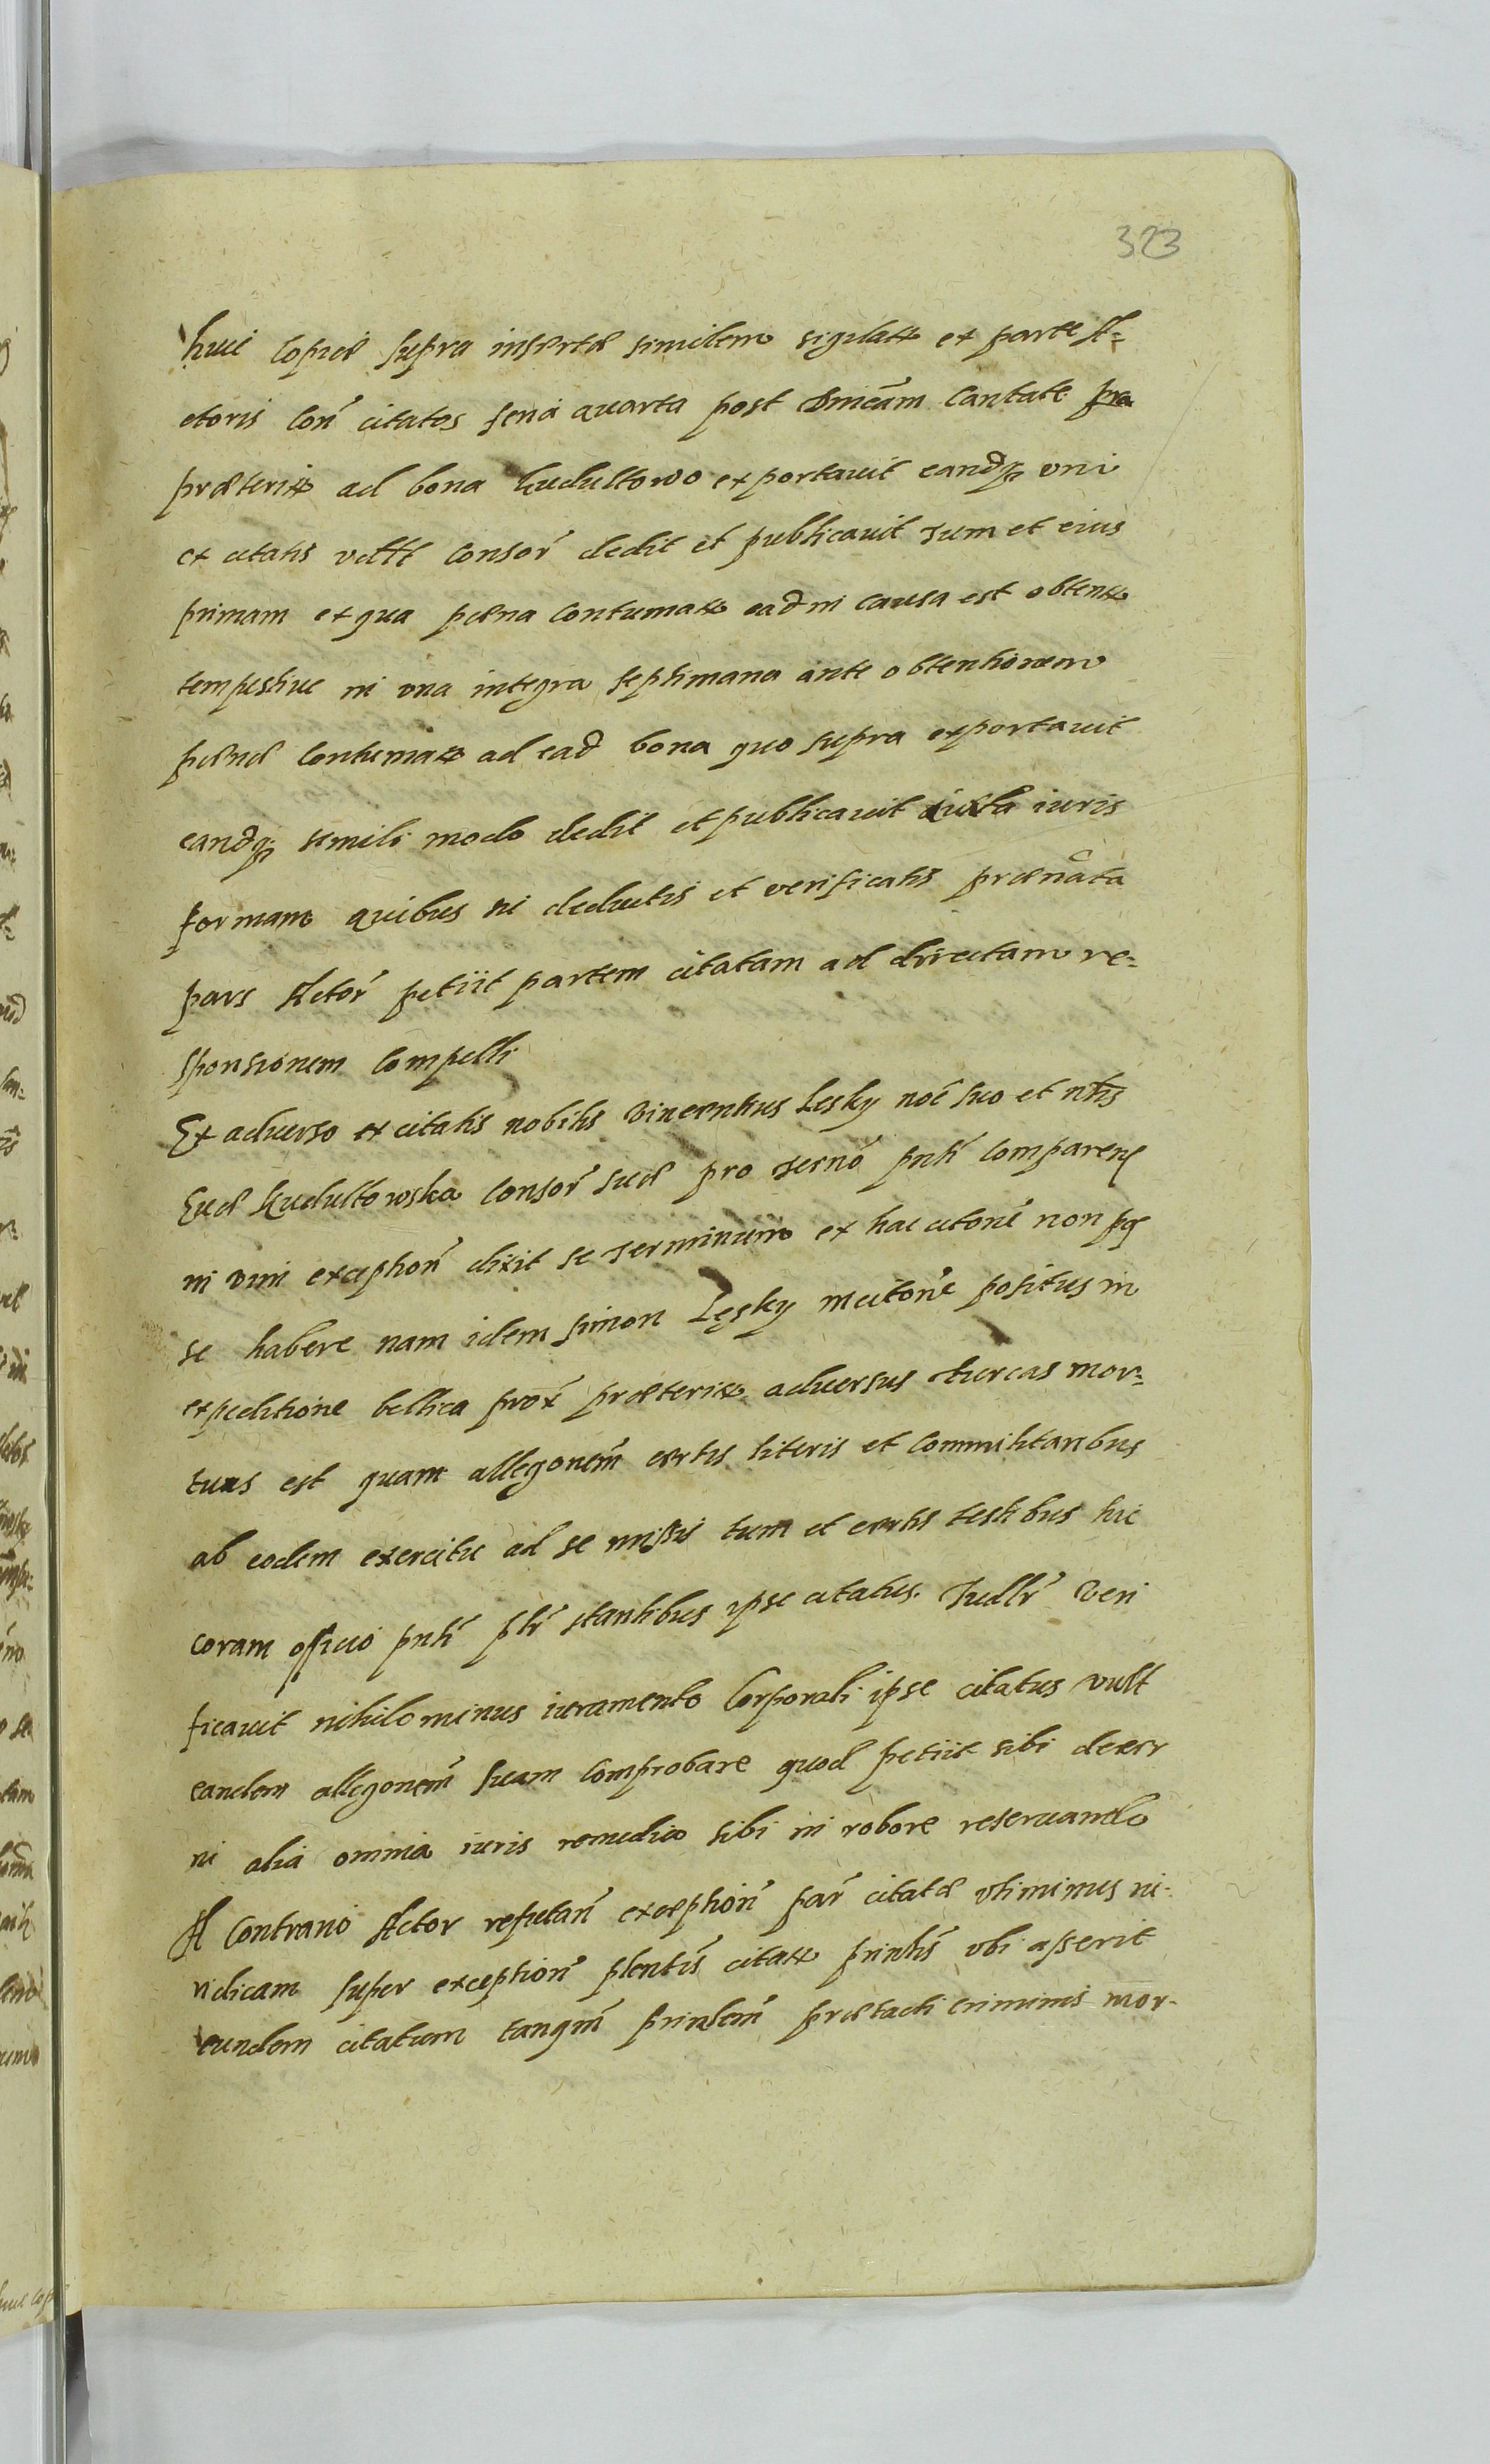 323
huic copiæ supra insertæ similem sigillatam ex parte A-
ctoris con̄ citatos feria quarta post Dnicam Cantate pra
præteritam ad bona Kudultowo exportavit eandq; vni
ex citatis vdlt consor̄ dedit et publicavit tum et eius
primam ex qua pæna contumatiæ ead in causa est obtenta
tempestive in vna integra septimana ante obtentionem
pænæ contumatiæ ad ead bona quo supra exportavit
eandq; simili modo dedit et publicavit iuxta iuris
formam quibus in deductis et verificatis prænata
pars Actor̄ petiit partem citatam ad directam re-
sponsionem compelli
Ex adverso ex citatis nobilis Vincentius Lesky noē suo et ntis
Evæ Kudultowska consor̄ suæ pro termō pnti comparens
in vim exception̄ dixit se terminum ex hac citone non ps
se habere nam idem Simon Lęsky in citone positus in
expeditione bellica prox præterita adversus Turcas mor-
tuus est quam allegonem certis literis et commilitanibus
ab eodem exercitu ad se missis tum et certis testibus hic
coram officio pnti pltr stantibus ipse citatus. Judltr veri
ficavit nihilominus iuramento corporali ipse citatus vult
eandem allegonem suam comprobare quod petiit sibi decer
ni alia omnia iuris remedia sibi in robore reservando
A contrario Actor refutan̄ exception̄ par̄ citatæ vtiminus iu-
ridicam super exception̄ plentis citatæ printis vbi asserit
eundem citatum tanqm̄ prinlem̄ prætacti criminis mor-